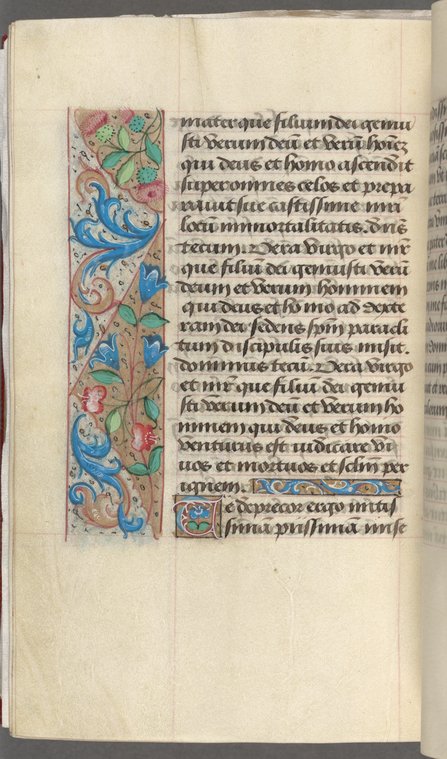 mater que filium dei genui
sti verum deū et verū hoiez
qui deus et homo ascendit
super omnes celos et prepa
rauit sue castissime mri
locū inmortalitatis. dns
tecum. Vera virgo et mr
que filiū dei genuisti verū
deum et verum hominem
qui deus et homo ad dexte
ram dei sedens spm paracli
tum discipulis suis misit.
dominus tecū. Vera virgo
et mr que filiū dei genui
sti verum deū et verum ho
minem qui deus et homo
venturus est iudicare vi
uos et mortuos et sclm per
ignem.
Te deprecor ergo mitis
simā piissimā mise